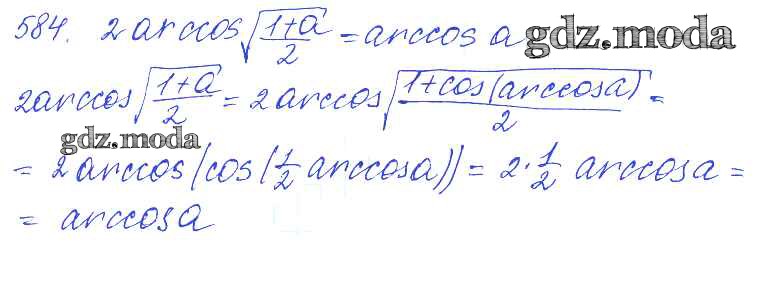 584. 2 arccos √((1+a)/2) = arccos a gdz.moda
2 arccos √((1+a)/2) = 2 arccos √((1+cos(arccos a))/2) =
gdz.moda
= 2 arccos(cos(1/2 arccos a)) = 2·1/2 arccos a =
= arccos a